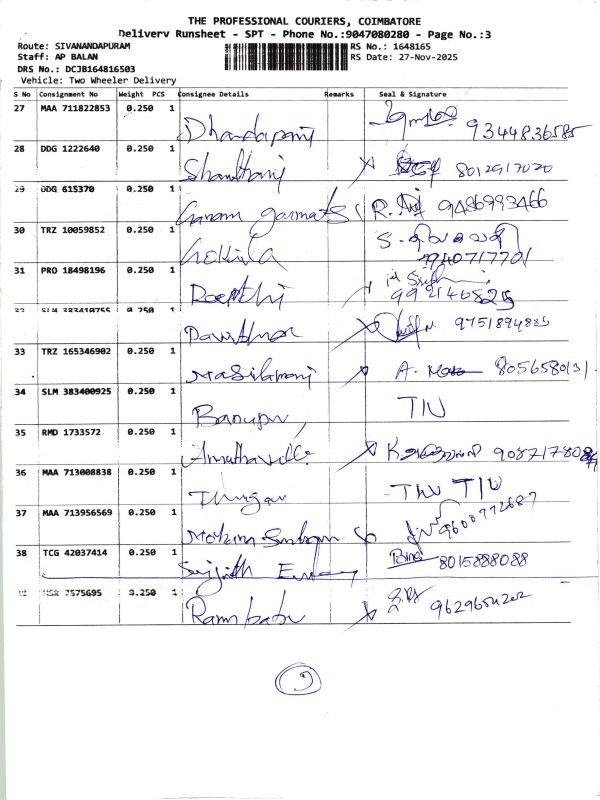 THE PROFESSIONAL COURIERS, COIMBATORE
Delivery Runsheet - SPT - Phone No.:9047080280 - Page No.:3
Route: SIVANANDAPURAM
Staff: AP BALAN
DRS No.: DCJB164816503
Vehicle: Two Wheeler Delivery
RS No.: 1648165
RS Date: 27-Nov-2025
S No Consignment No Weight PCS Consignee Details Remarks Seal & Signature
27 MAA 711822853 0.250 1 Dhandapani 9344836585
28 DDG 1222640 0.250 1 Shanthani 8012917020
29 DDG 615370 0.250 1 R. 9486993466
30 TRZ 10059852 0.250 1 Gokila 7940717701
31 PRO 18498196 0.250 1 Deepthi
32 SLM 383410755 0.250 1 9751894885
33 TRZ 165346902 0.250 1 Masilamani A. 8056580131
34 SLM 383400925 0.250 1 Banupu TIU
35 RMD 1733572 0.250 1
36 MAA 713008838 0.250 1 TIU
37 MAA 713956569 0.250 1 9600772687
38 TCG 42037414 0.250 1 8015888088
7575695 0.250 1 Rambabu
9